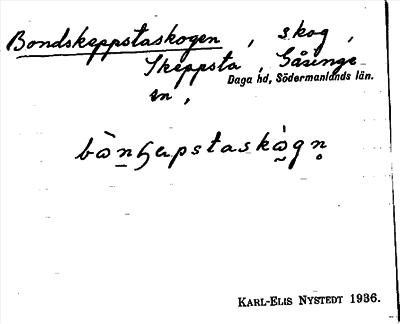 Bondskeppstaskogen, skog,
Skeppsta, Gåsinge
Daga hd, Södermanlands län.
sn,
bὼn̲ʃɛpstaskὼ̰gn̥
KARL-ELIS NYSTEDT 1936.